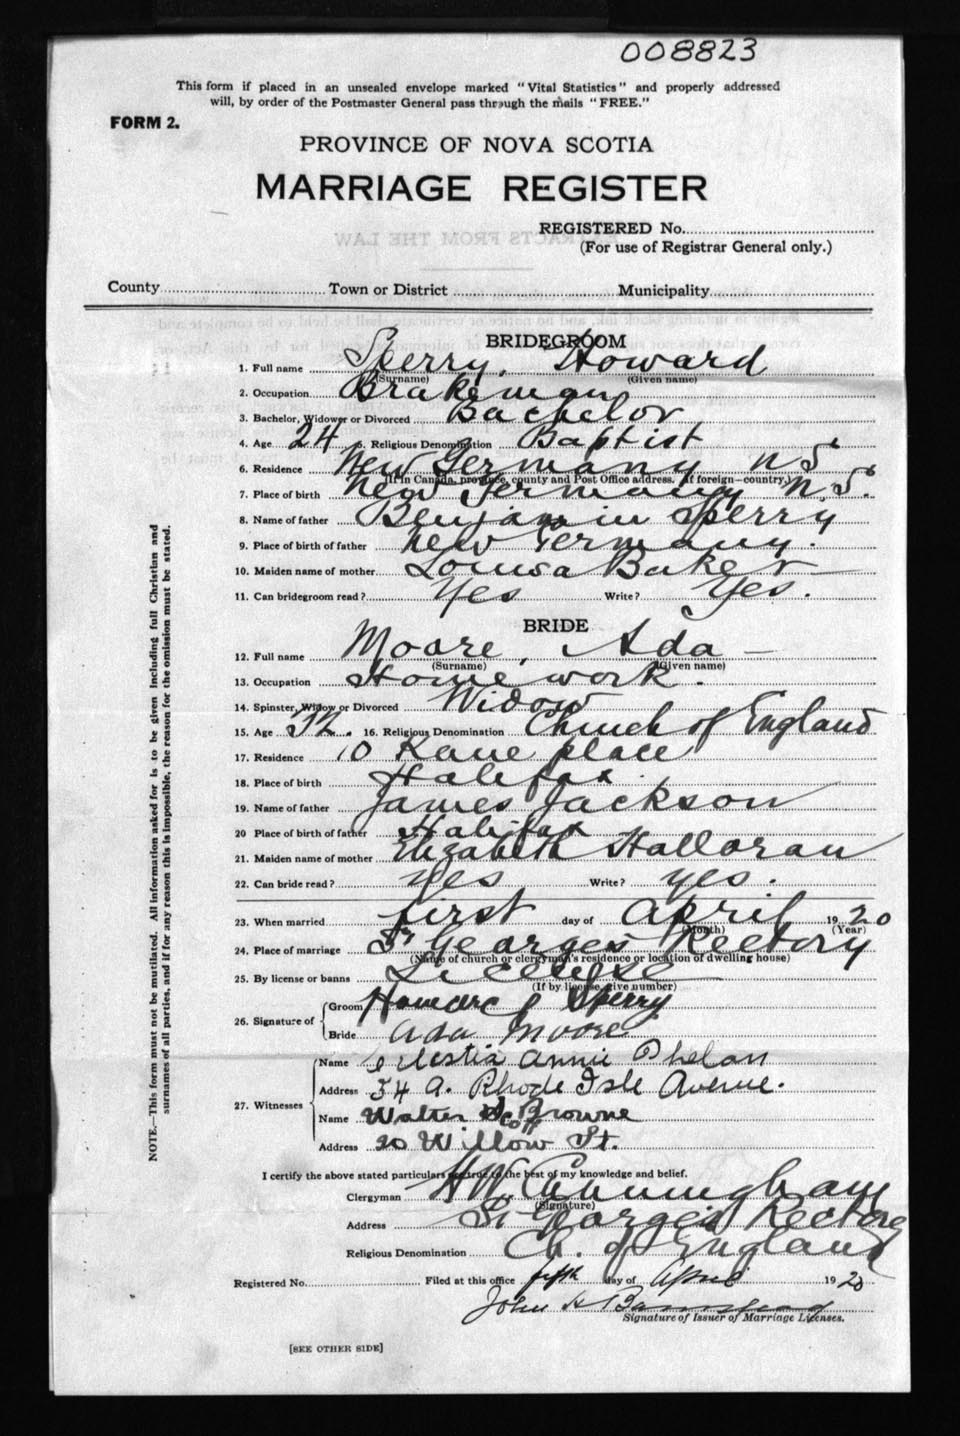 008823
This form if placed in an unsealed envelope marked "Vital Statistics" and properly addressed
will, by order of the Postmaster General pass through the mails "FREE."
FORM 2.
PROVINCE OF NOVA SCOTIA
MARRIAGE REGISTER
REGISTERED No.
(For use of Registrar General only.)
County Town or District Municipality
BRIDEGROOM
1. Full name Sperry, Howard
(Surname) (Given name)
2. Occupation Brakeman
3. Bachelor, Widower or Divorced Bachelor
4. Age 24 5. Religious Denomination Baptist
6. Residence New Germany N S
(If in Canada, province, county and Post Office address. If foreign—country.)
7. Place of birth New Germany N. S.
8. Name of father Benjamin Sperry
9. Place of birth of father New Germany.
10. Maiden name of mother Louisa Baker
11. Can bridegroom read? Yes Write? Yes.
BRIDE
12. Full name Moore, Ada
(Surname) (Given name)
13. Occupation Home work.
14. Spinster, Widow or Divorced Widow
15. Age 32. 16. Religious Denomination Church of England
17. Residence 10 Kane place
18. Place of birth Halifax.
19. Name of father James Jackson
20 Place of birth of father Halifax
21. Maiden name of mother Elizabeth Halloran
22. Can bride read? yes Write? yes.
23. When married first day of April 1920
(Month) (Year)
24. Place of marriage St Georges Rectory
(Name of church or clergyman's residence or location of dwelling house)
25. By license or banns License
(If by license, give number)
26. Signature of Groom Howard Sperry
Bride Ada Moore
27. Witnesses Name Celestia Annie Phelan
Address 54 A. Rhode Isle Avenue.
Name Walter Scott Browne
Address 20 Willow St.
I certify the above stated particulars are true to the best of my knowledge and belief.
Clergyman H W Cunningham
(Signature)
Address St Georges Rectory
Religious Denomination Ch. of England
Registered No. Filed at this office fifth day of April 1920
John H
Signature of Issuer of Marriage Licenses.
[SEE OTHER SIDE]
NOTE.—This form must not be mutilated. All information asked for is to be given including full Christian and
surnames of all parties, and if for any reason this is impossible, the reason for the omission must be stated.